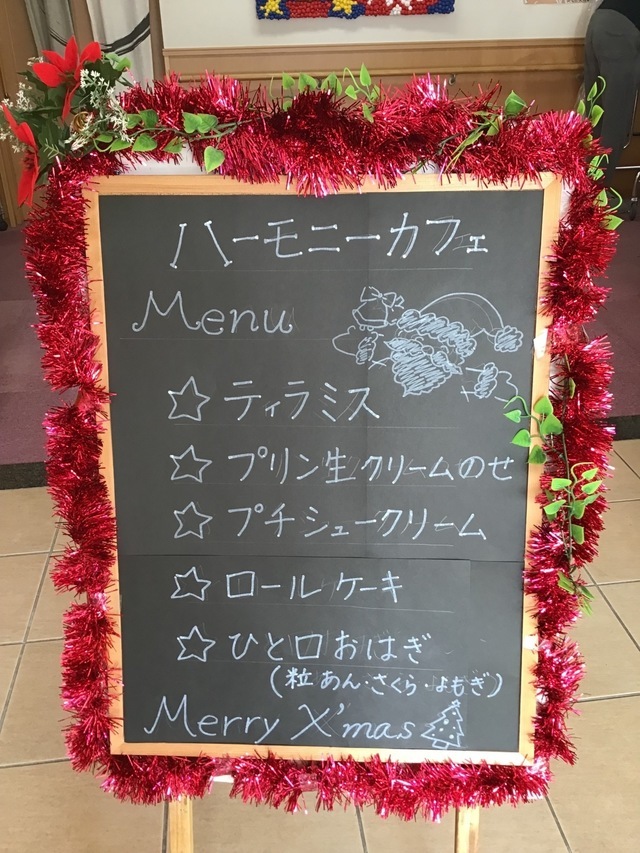 ハーモニーカフェ
Menu
☆ ティラミス
☆ プリン生クリームのせ
☆ プチシュークリーム
☆ ロールケーキ
☆ ひと口おはぎ
(粒あん・さくら・よもぎ)
Merry X'mas